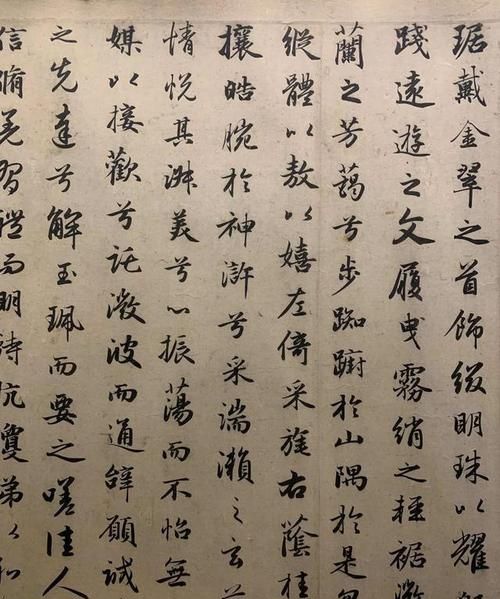 琚戴金翠之首飾綴明珠以耀
踐遠遊之文履曳霧綃之輕裾
蘭之芳藹兮步踟躕於山隅於是
縱體以敖以嬉左倚采旄右蔭桂
攘皓腕於神滸兮采湍瀨之玄
情悅其淑美兮心振蕩而不怡無
媒以接歡兮託微波而通辭願誠
之先達兮解玉珮而要之嗟佳人
信脩羌習禮而明詩抗瓊珶以和